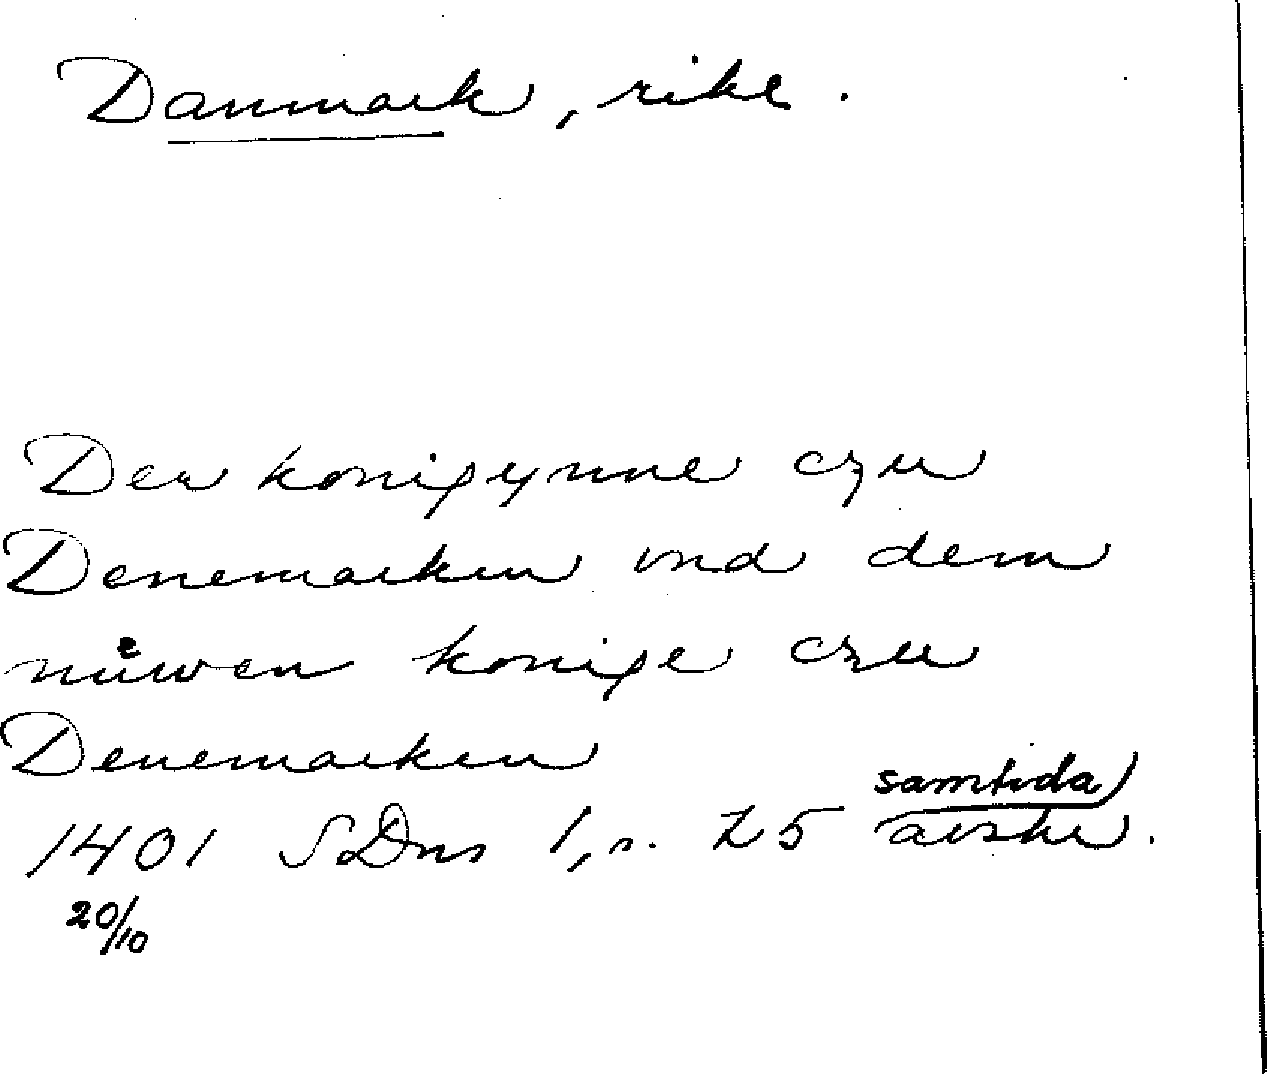 Danmark, rike.
Der konigynne czu
Denemarken vnd dem
nuͤwen konige czu
Denemarken
samtida
1401 SDns 1, s. 25 avskr.
20/10